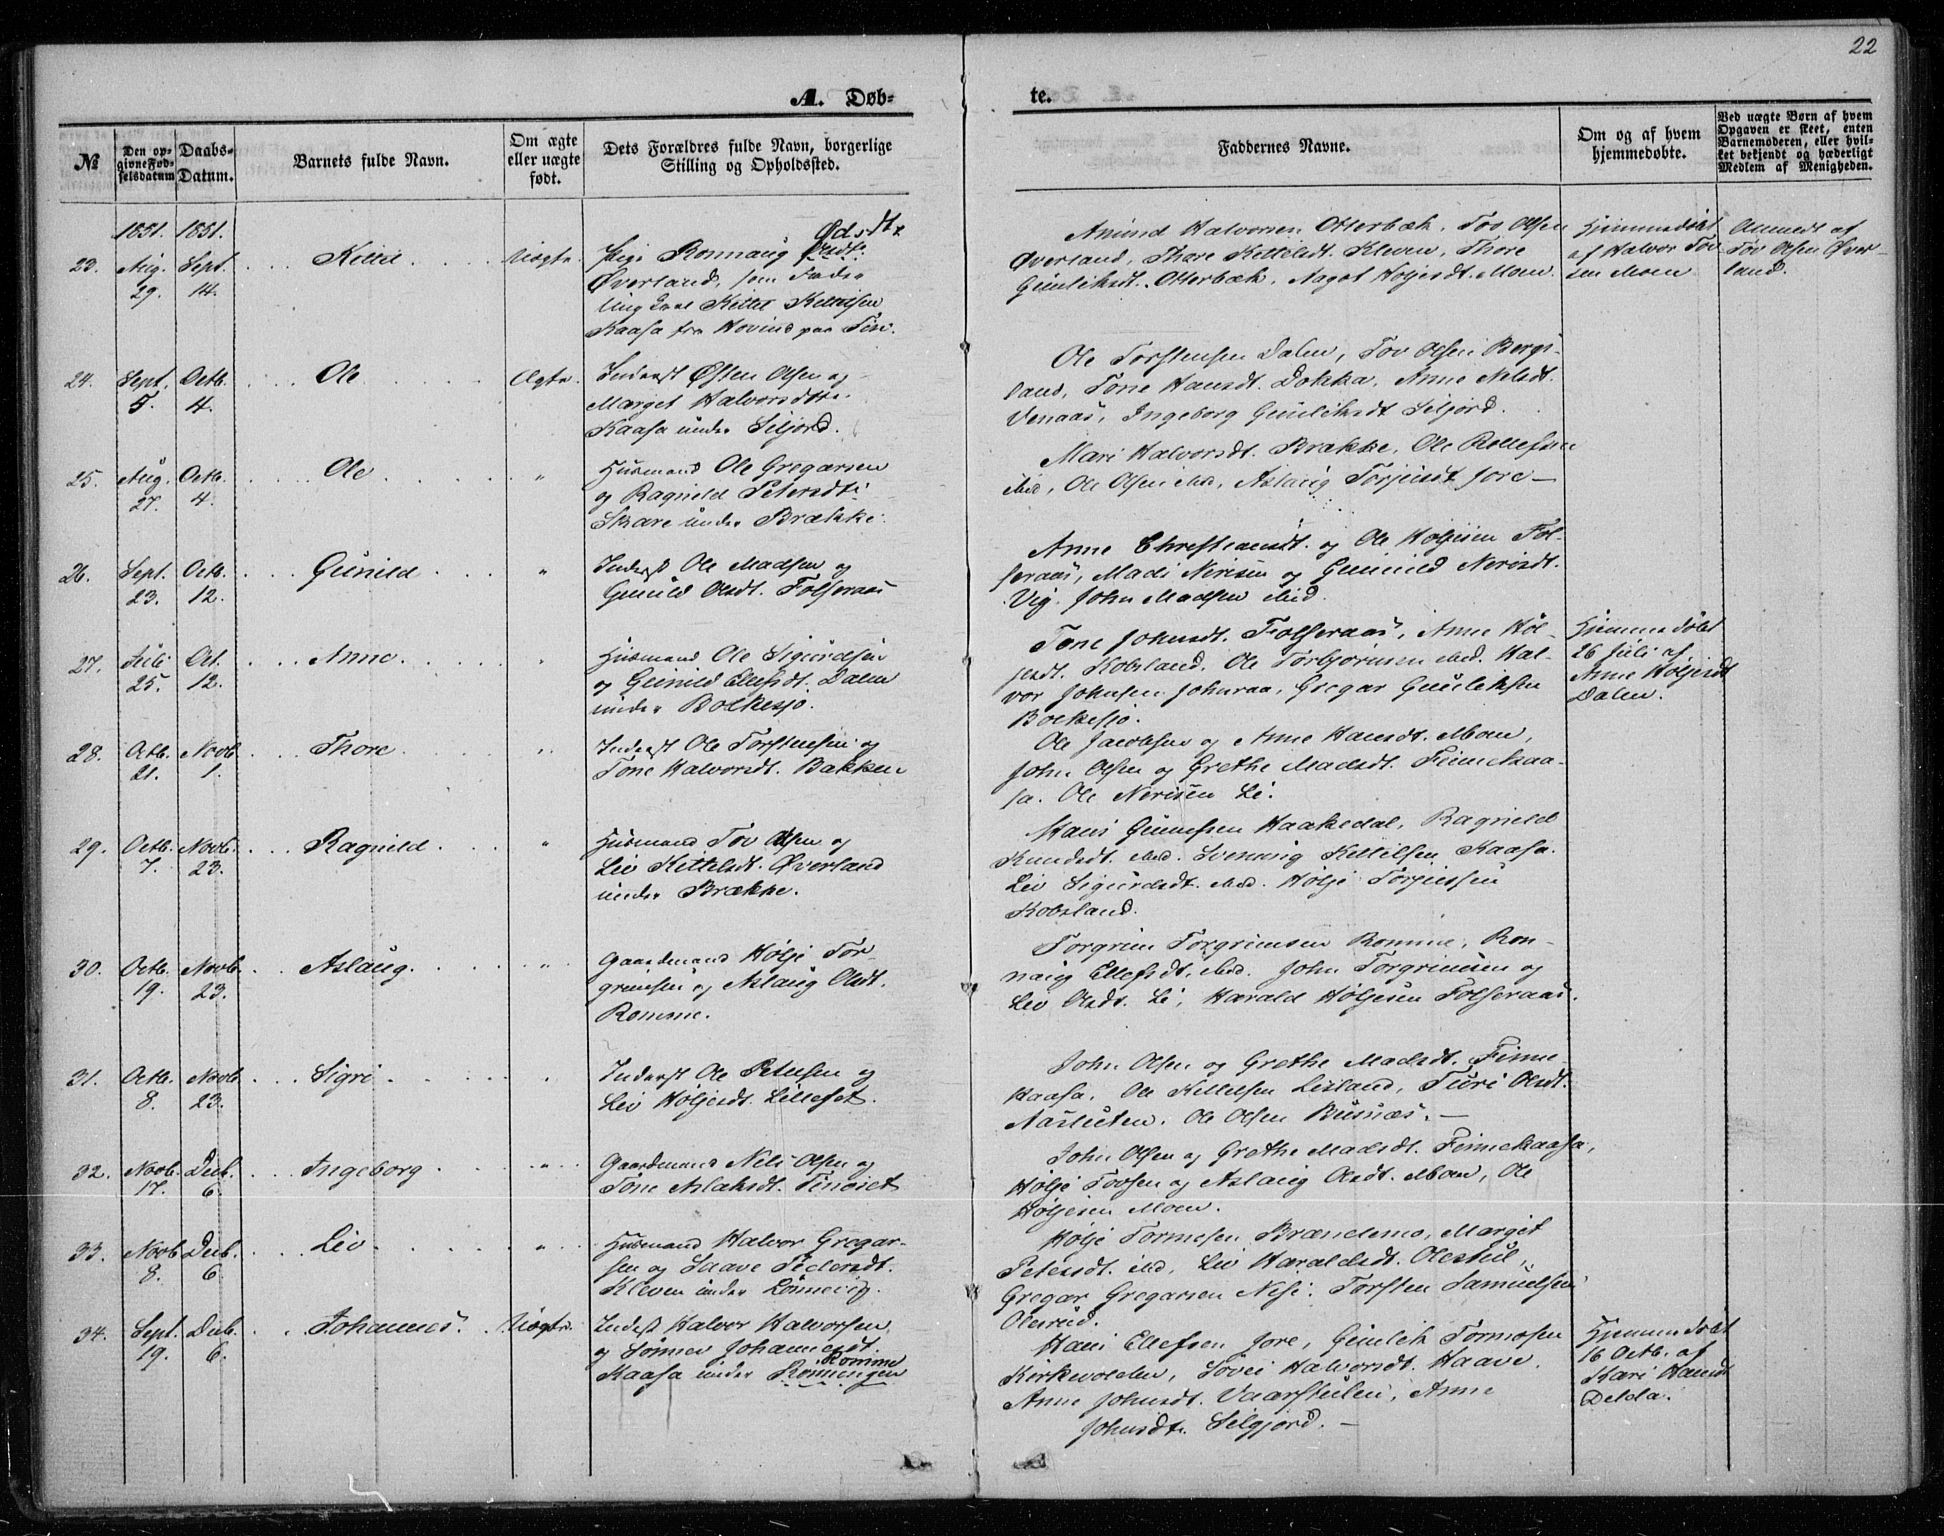 22
A. Døb-
te.
№
Den opgivne Fødselsdatum
Daabs-Datum.
Barnets fulde Navn.
Om ægte eller uægte født.
Dets Forældres fulde Navn, borgerlige Stilling og Opholdssted.
Faddernes Navne.
Om og af hvem hjemmedøbte.
Ved uægte Børn af hvem Opgaven er skeet, enten Barnemoderen, eller hvilket bekjendt og hæderligt Medlem af Menigheden.
1851. 1851.
23. Aug. 29. Sept. 14. Kittil Uægte.
Pige Ronnaug
Øverland, som Fader
Kittil Kittilsen
Kaasa fra Hovind paa Tin.
Amund Halvorsen Otterbæk, Tov Olsen
Øverland, Thore Kittilsdt. Kleven, Thore
Gunliksdt. Otterbæk, Aagot Høljesdt. Moen.
Hjemmedøbt
af Halvor Tov-
sen Moen
Anmeldt af
Tov Olsen Øver-
land.
24. Sept. 5. Octb. 4. Ole Ægte.
Inderst Østen Olsen og
Marget Halvorsdtr.
Kaasa under Seljord.
Ole Torstensen Dalen, Tov Olsen Bergs-
land, Tone Hansdt. Dokka, Anne Nilsdt.
Venaas, Ingeborg Gunliksdt Seljord.
25. Aug. 27. Octb. 4. Ole "
Husmand Ole Gregarsen
og Ragnild Petersdt.
Skare under Brække.
Mari Halvorsdt. Brække, Ole Rollefsen
ibid, Ole Olsen ibid, Aslaug Torjusdt Jore —
26. Sept. 23. Octb. 12. Gunild "
Inderst Ole Madsen og
Gunild Olsdt. Folseraas
Anne Christiansdt. og Ole Høljesen Fol-
seraas, Mads Nerisen og Gunnild Nerisdt.
Vig. John Madsen ibid.
27. Juli 25. Oct. 12. Anne "
Husmand Ole Sigurdsen
og Gunild Ellefsdt. Dalen
under Bolkesjø.
Tone Johnsdt. Folseraas, Anne Høl-
jesdt. Kobsland, Ole Torbjørnsen ibid. Hal-
vor Johnsen Johnraa, Gregar Gunleksen
Bolkesjø.
Hjemmedøbt
26 Juli af
Anne Høljesdt
Dalen.
28. Octb. 21. Novb. 1. Thore "
Inderst Ole Torstensen og
Tone Halvorsdt. Bakken
Ole Jacobsen og Anne Hansdt. Moen,
John Olsen og Grethe Madsdt. Finnekaa-
sa. Ole Nerisen Li.
29. Octb. 7. Novb. 23. Ragnild "
Husmand Tov Olsen og
Liv Kittilsdt. Øverland
under Brække.
Hans Gunnufsen Haakedal, Ragnild
Knudsdt. ibid. Svennung Kettilsen Kaasa.
Liv Sigurdsdt. ibid. Hølje Torjussen
Kobsland.
30. Octb. 19. Novb. 23. Aslaug. "
Gaardmand Hølje Tor-
grimsen og Aslaug Olsdt.
Romme.
Torgrim Torgrimsen Romme, Ron-
naug Ellefsdt. ibid. John Torgrimsen og
Liv Olsdt. Li, Harald Høljesen Folseraas.
31. Octb. 8. Novb. 23. Sigri "
Inderst Ole Petersen og
Liv Høljesdt. Lillefet.
John Olsen og Grethe Madsdt. Finne-
kaasa, Ole Kettilsen Lisland, Turi Olsdt.
Ole Olsen Busnæs. —
32. Novb. 17. Decb. 6. Ingeborg "
Gaardmand Nils Olsen og
Tone Aslaksdt. Tinøiet
John Olsen og Grethe Madsdt. Finnekaasa,
Hølje Tovsen og Aslaug Olsdt. Moen, Ole
Høljesen Moen.
33. Novb. 8. Decb. 6. Liv "
Husmand Halvor Gregar-
sen og Saave Pedersdt.
Kleven under Lønnevig.
Hølje Tormosen Brændemo, Marget
Petersdt. ibid, Liv Haraldsdt. Olestul,
Gregar Gregarsen Nesi. Torsten Samuelsen
Olesrud.
34. Sept. 19. Decb. 6. Johannes. Uægte.
Inderst Halvor Halvorsen
og Sønnev Johannesdt.
Romme
Kaasa under Ronningen
Hans Ellefsen Jore, Gunlek Tormosen
Kirkevolden, Sovei Halvorsdt. Haave.
Anne Johnsdt. Vaarstulen, Anne
Johnsdtr. Selgjord. —
Hjemmedøbt
16 Octb. af
Kari Hansdt
Dekla.